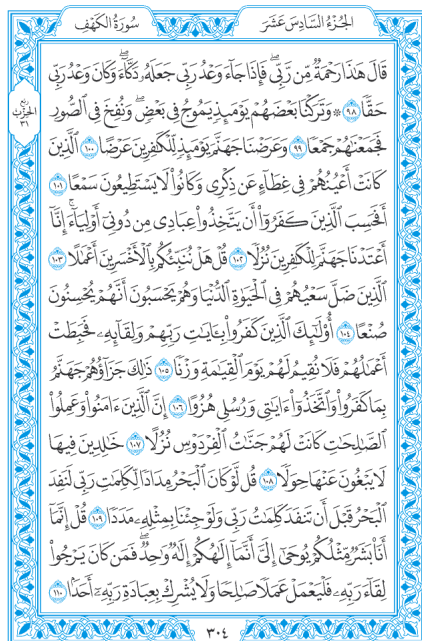 الجُزْءُ السَّادِسَ عَشَرَ
سُورَةُ الكَهْفِ
قَالَ هَٰذَا رَحْمَةٌ مِّن رَّبِّي ۖ فَإِذَا جَاءَ وَعْدُ رَبِّي جَعَلَهُۥ دَكَّاءَ ۖ وَكَانَ وَعْدُ رَبِّي
حَقًّا ٩٨ ۞ وَتَرَكْنَا بَعْضَهُمْ يَوْمَئِذٍ يَمُوجُ فِي بَعْضٍ ۖ وَنُفِخَ فِي الصُّورِ
رُبْع
الحِزْب
٣١
فَجَمَعْنَٰهُمْ جَمْعًا ٩٩ وَعَرَضْنَا جَهَنَّمَ يَوْمَئِذٍ لِّلْكَٰفِرِينَ عَرْضًا ١٠٠ الَّذِينَ
كَانَتْ أَعْيُنُهُمْ فِي غِطَاءٍ عَن ذِكْرِي وَكَانُوا۟ لَا يَسْتَطِيعُونَ سَمْعًا ١٠١
أَفَحَسِبَ الَّذِينَ كَفَرُوٓا۟ أَن يَتَّخِذُوا۟ عِبَادِي مِن دُونِيٓ أَوْلِيَاءَ ۚ إِنَّآ
أَعْتَدْنَا جَهَنَّمَ لِلْكَٰفِرِينَ نُزُلًا ١٠٢ قُلْ هَلْ نُنَبِّئُكُم بِالْأَخْسَرِينَ أَعْمَٰلًا ١٠٣
الَّذِينَ ضَلَّ سَعْيُهُمْ فِي الْحَيَوٰةِ الدُّنْيَا وَهُمْ يَحْسَبُونَ أَنَّهُمْ يُحْسِنُونَ
صُنْعًا ١٠٤ أُو۟لَٰٓئِكَ الَّذِينَ كَفَرُوا۟ بِـَٔايَٰتِ رَبِّهِمْ وَلِقَآئِهِۦ فَحَبِطَتْ
أَعْمَٰلُهُمْ فَلَا نُقِيمُ لَهُمْ يَوْمَ الْقِيَٰمَةِ وَزْنًا ١٠٥ ذَٰلِكَ جَزَآؤُهُمْ جَهَنَّمُ
بِمَا كَفَرُوا۟ وَاتَّخَذُوٓا۟ ءَايَٰتِي وَرُسُلِي هُزُوًا ١٠٦ إِنَّ الَّذِينَ ءَامَنُوا۟ وَعَمِلُوا۟
الصَّٰلِحَٰتِ كَانَتْ لَهُمْ جَنَّٰتُ الْفِرْدَوْسِ نُزُلًا ١٠٧ خَٰلِدِينَ فِيهَا
لَا يَبْغُونَ عَنْهَا حِوَلًا ١٠٨ قُل لَّوْ كَانَ الْبَحْرُ مِدَادًا لِّكَلِمَٰتِ رَبِّي لَنَفِدَ
الْبَحْرُ قَبْلَ أَن تَنفَدَ كَلِمَٰتُ رَبِّي وَلَوْ جِئْنَا بِمِثْلِهِۦ مَدَدًا ١٠٩ قُلْ إِنَّمَآ
أَنَا۠ بَشَرٌ مِّثْلُكُمْ يُوحَىٰٓ إِلَيَّ أَنَّمَآ إِلَٰهُكُمْ إِلَٰهٌ وَٰحِدٌ ۖ فَمَن كَانَ يَرْجُوا۟
لِقَآءَ رَبِّهِۦ فَلْيَعْمَلْ عَمَلًا صَٰلِحًا وَلَا يُشْرِكْ بِعِبَادَةِ رَبِّهِۦٓ أَحَدًۢا ١١٠
٣٠٤